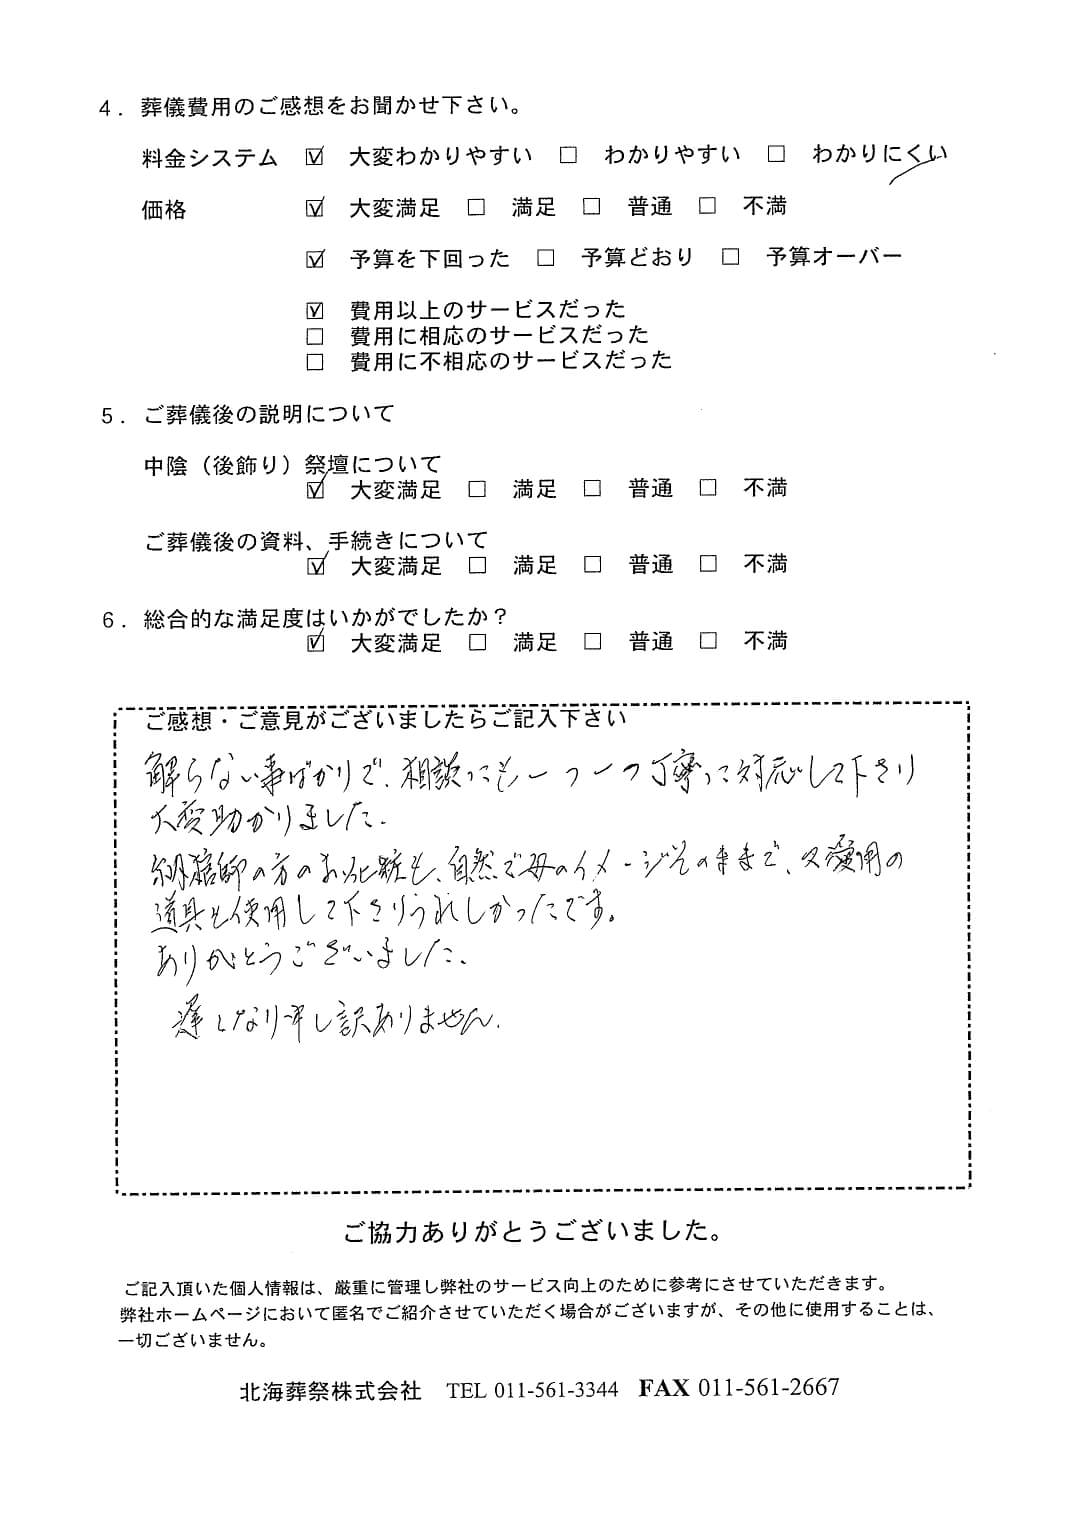 4．葬儀費用のご感想をお聞かせ下さい。
料金システム ☑ 大変わかりやすい □ わかりやすい □ わかりにくい
価格 ☑ 大変満足 □ 満足 □ 普通 □ 不満
☑ 予算を下回った □ 予算どおり □ 予算オーバー
☑ 費用以上のサービスだった
□ 費用に相応のサービスだった
□ 費用に不相応のサービスだった
5．ご葬儀後の説明について
中陰（後飾り）祭壇について
☑ 大変満足 □ 満足 □ 普通 □ 不満
ご葬儀後の資料、手続きについて
☑ 大変満足 □ 満足 □ 普通 □ 不満
6．総合的な満足度はいかがでしたか？
☑ 大変満足 □ 満足 □ 普通 □ 不満
ご感想・ご意見がございましたらご記入下さい
解らない事ばかりで、相談にも一つ一つ丁寧に対応して下さり
大変助かりました。
納棺師の方のお化粧も、自然で母のイメージそのままで、又愛用の
道具も使用して下さりうれしかったです。
ありがとうございました。
遅くなり申し訳ありません。
ご協力ありがとうございました。
ご記入頂いた個人情報は、厳重に管理し弊社のサービス向上のために参考にさせていただきます。
弊社ホームページにおいて匿名でご紹介させていただく場合がございますが、その他に使用することは、
一切ございません。
北海葬祭株式会社 TEL 011-561-3344 FAX 011-561-2667